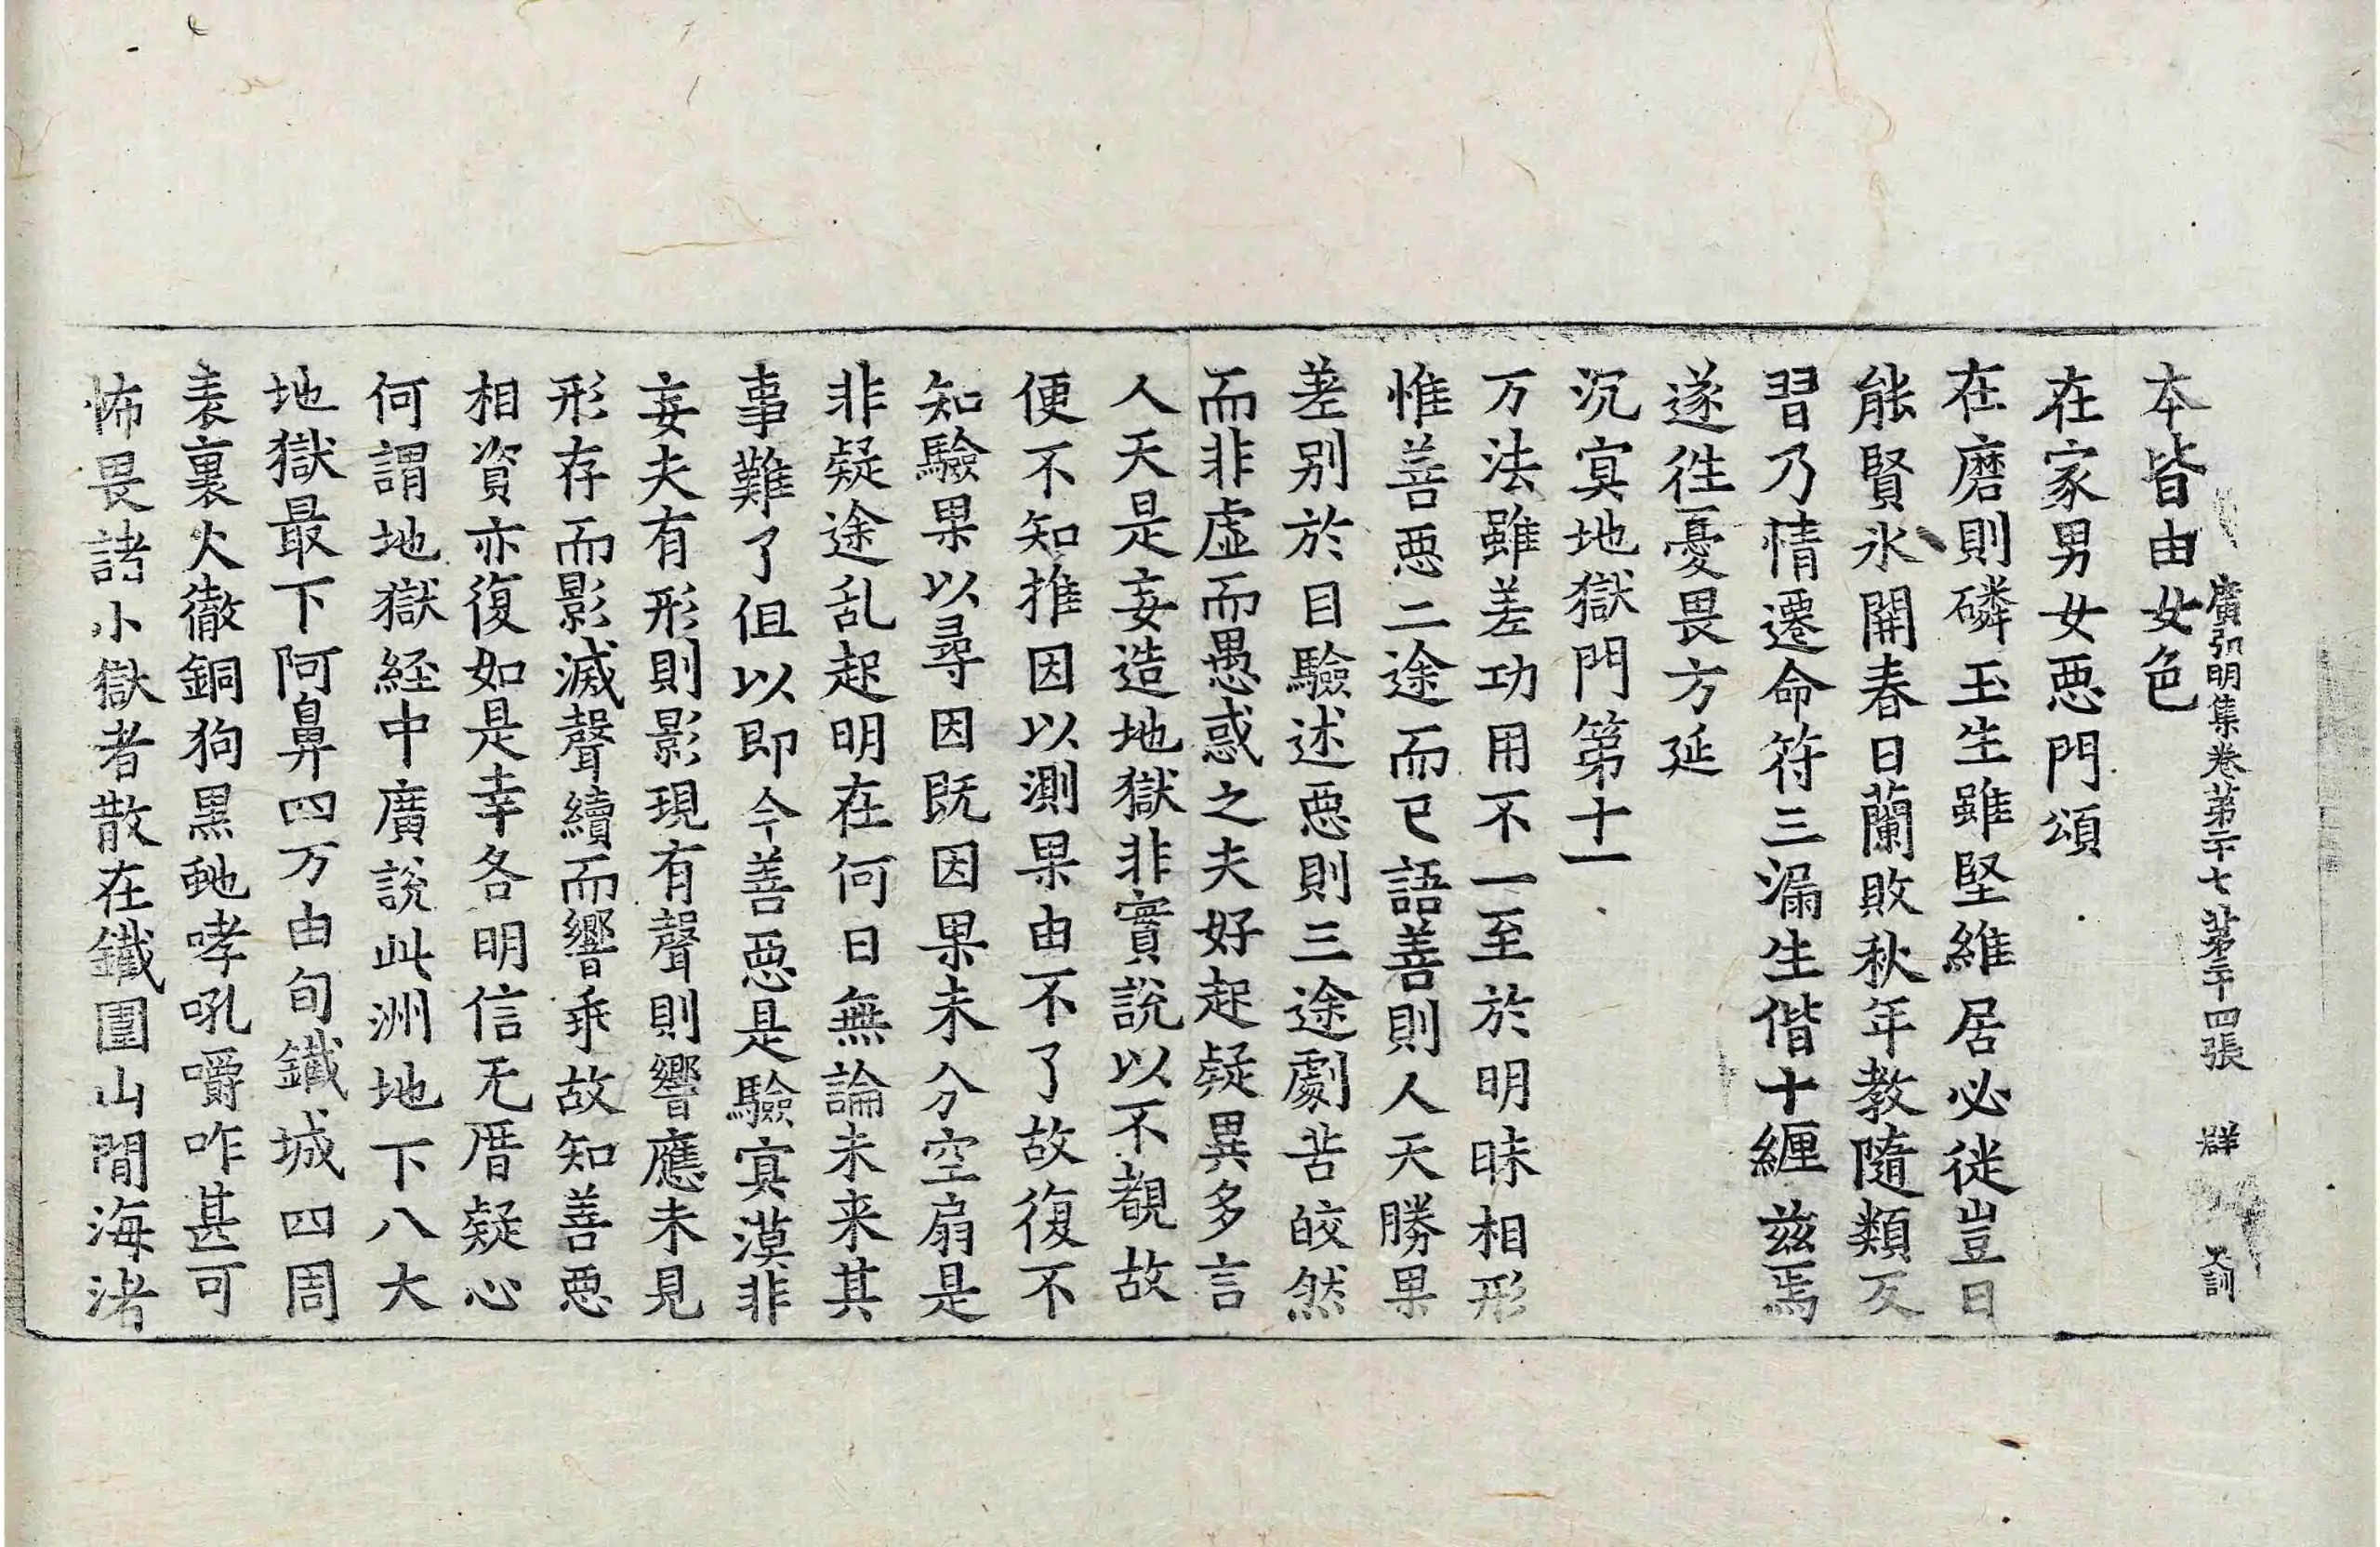 廣弘明集卷第二十七 第三十四張 群 天訓
本皆由女色
在家男女惡門頌
在磨則磷玉生雖堅維居必徙豈日
能賢氷開春日蘭敗秋年教隨類反
習乃情遷命符三漏生偕十纒茲焉
遂徃憂畏方延
沉㝠地獄門第十一
万法雖差功用不一至於明昧相形
惟善惡二途而已語善則人天勝果
差別於目驗述惡則三途劇苦皎然
而非虛而愚惑之夫好起疑異多言
人天是妄造地獄非實說以不覩故
便不知推因以測果由不了故復不
知驗果以尋因旣因果未分空扇是
非疑途乱起明在何日無論未来其
事難了伹以即今善惡是驗㝠漠非
妄夫有形則影現有聲則響應未見
形存而影滅聲續而響乖故知善惡
相資亦復如是幸各明信无厝疑心
何謂地獄経中廣說此洲地下八大
地獄最下阿鼻四万由旬鐵城四周
表裏火徹銅狗黒虵哮吼嚼咋甚可
怖畏諸小獄者散在鐵圍山閒海渚